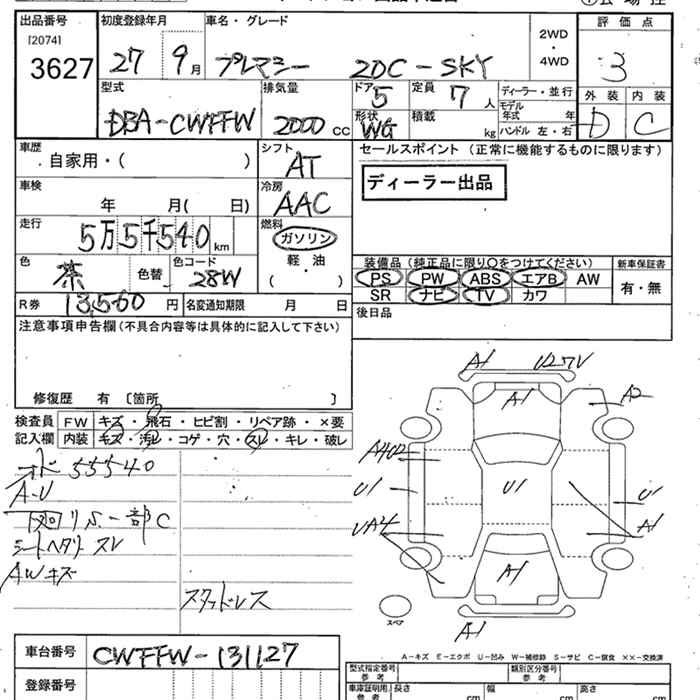 出品番号 初度登録年月 車名・グレード 2WD ・ 4WD 評価点
[2074]
3627 27 9月 プレマシー 20C-SKY 3
型式 排気量 ドア 5 定員 7人 ディーラー・並行 外装 内装
DBA-CWFFW 2000 CC 形状 WG 積載 kg モデル年式 年 D C
ハンドル 左・右
車歴 自家用・( ) シフト AT セールスポイント (正常に機能するものに限ります)
車検 年 月( 日) 冷房 AAC ディーラー出品
走行 5万5千540km 燃料 ガソリン
軽・油
( )
色 茶 色替 色コード 28W 装備品 (純正品に限り○をつけてください) 新車保証書
PS PW ABS エアB AW 有・無
SR ナビ TV カワ
R券 13,560円 名変通知期限 月 日 後日品
注意事項申告欄(不具合内容等は具体的に記入して下さい)
修復歴 有 〔箇所 〕
検査員 FW キズ・飛石・ヒビ割・リペア跡・×要
記入欄 内装 キズ・汚レ・コゲ・穴・スレ・キレ・破レ
オド 55540
A-U
C
シートヘタリ スレ
AWキズ
スタッドレス
A1 U2 V
A1 A2
U1 U1 U1
UA4 A1
A1
スペア A1
A-キズ E-エクボ U-凹み W-補修跡 S-サビ C-腐食 ××-交換済
車台番号 CWFFW-131127
型式指定番号 参考 類別区分番号 参考
登録番号 車庫証明用 参考 長さ cm 幅 cm 高さ cm